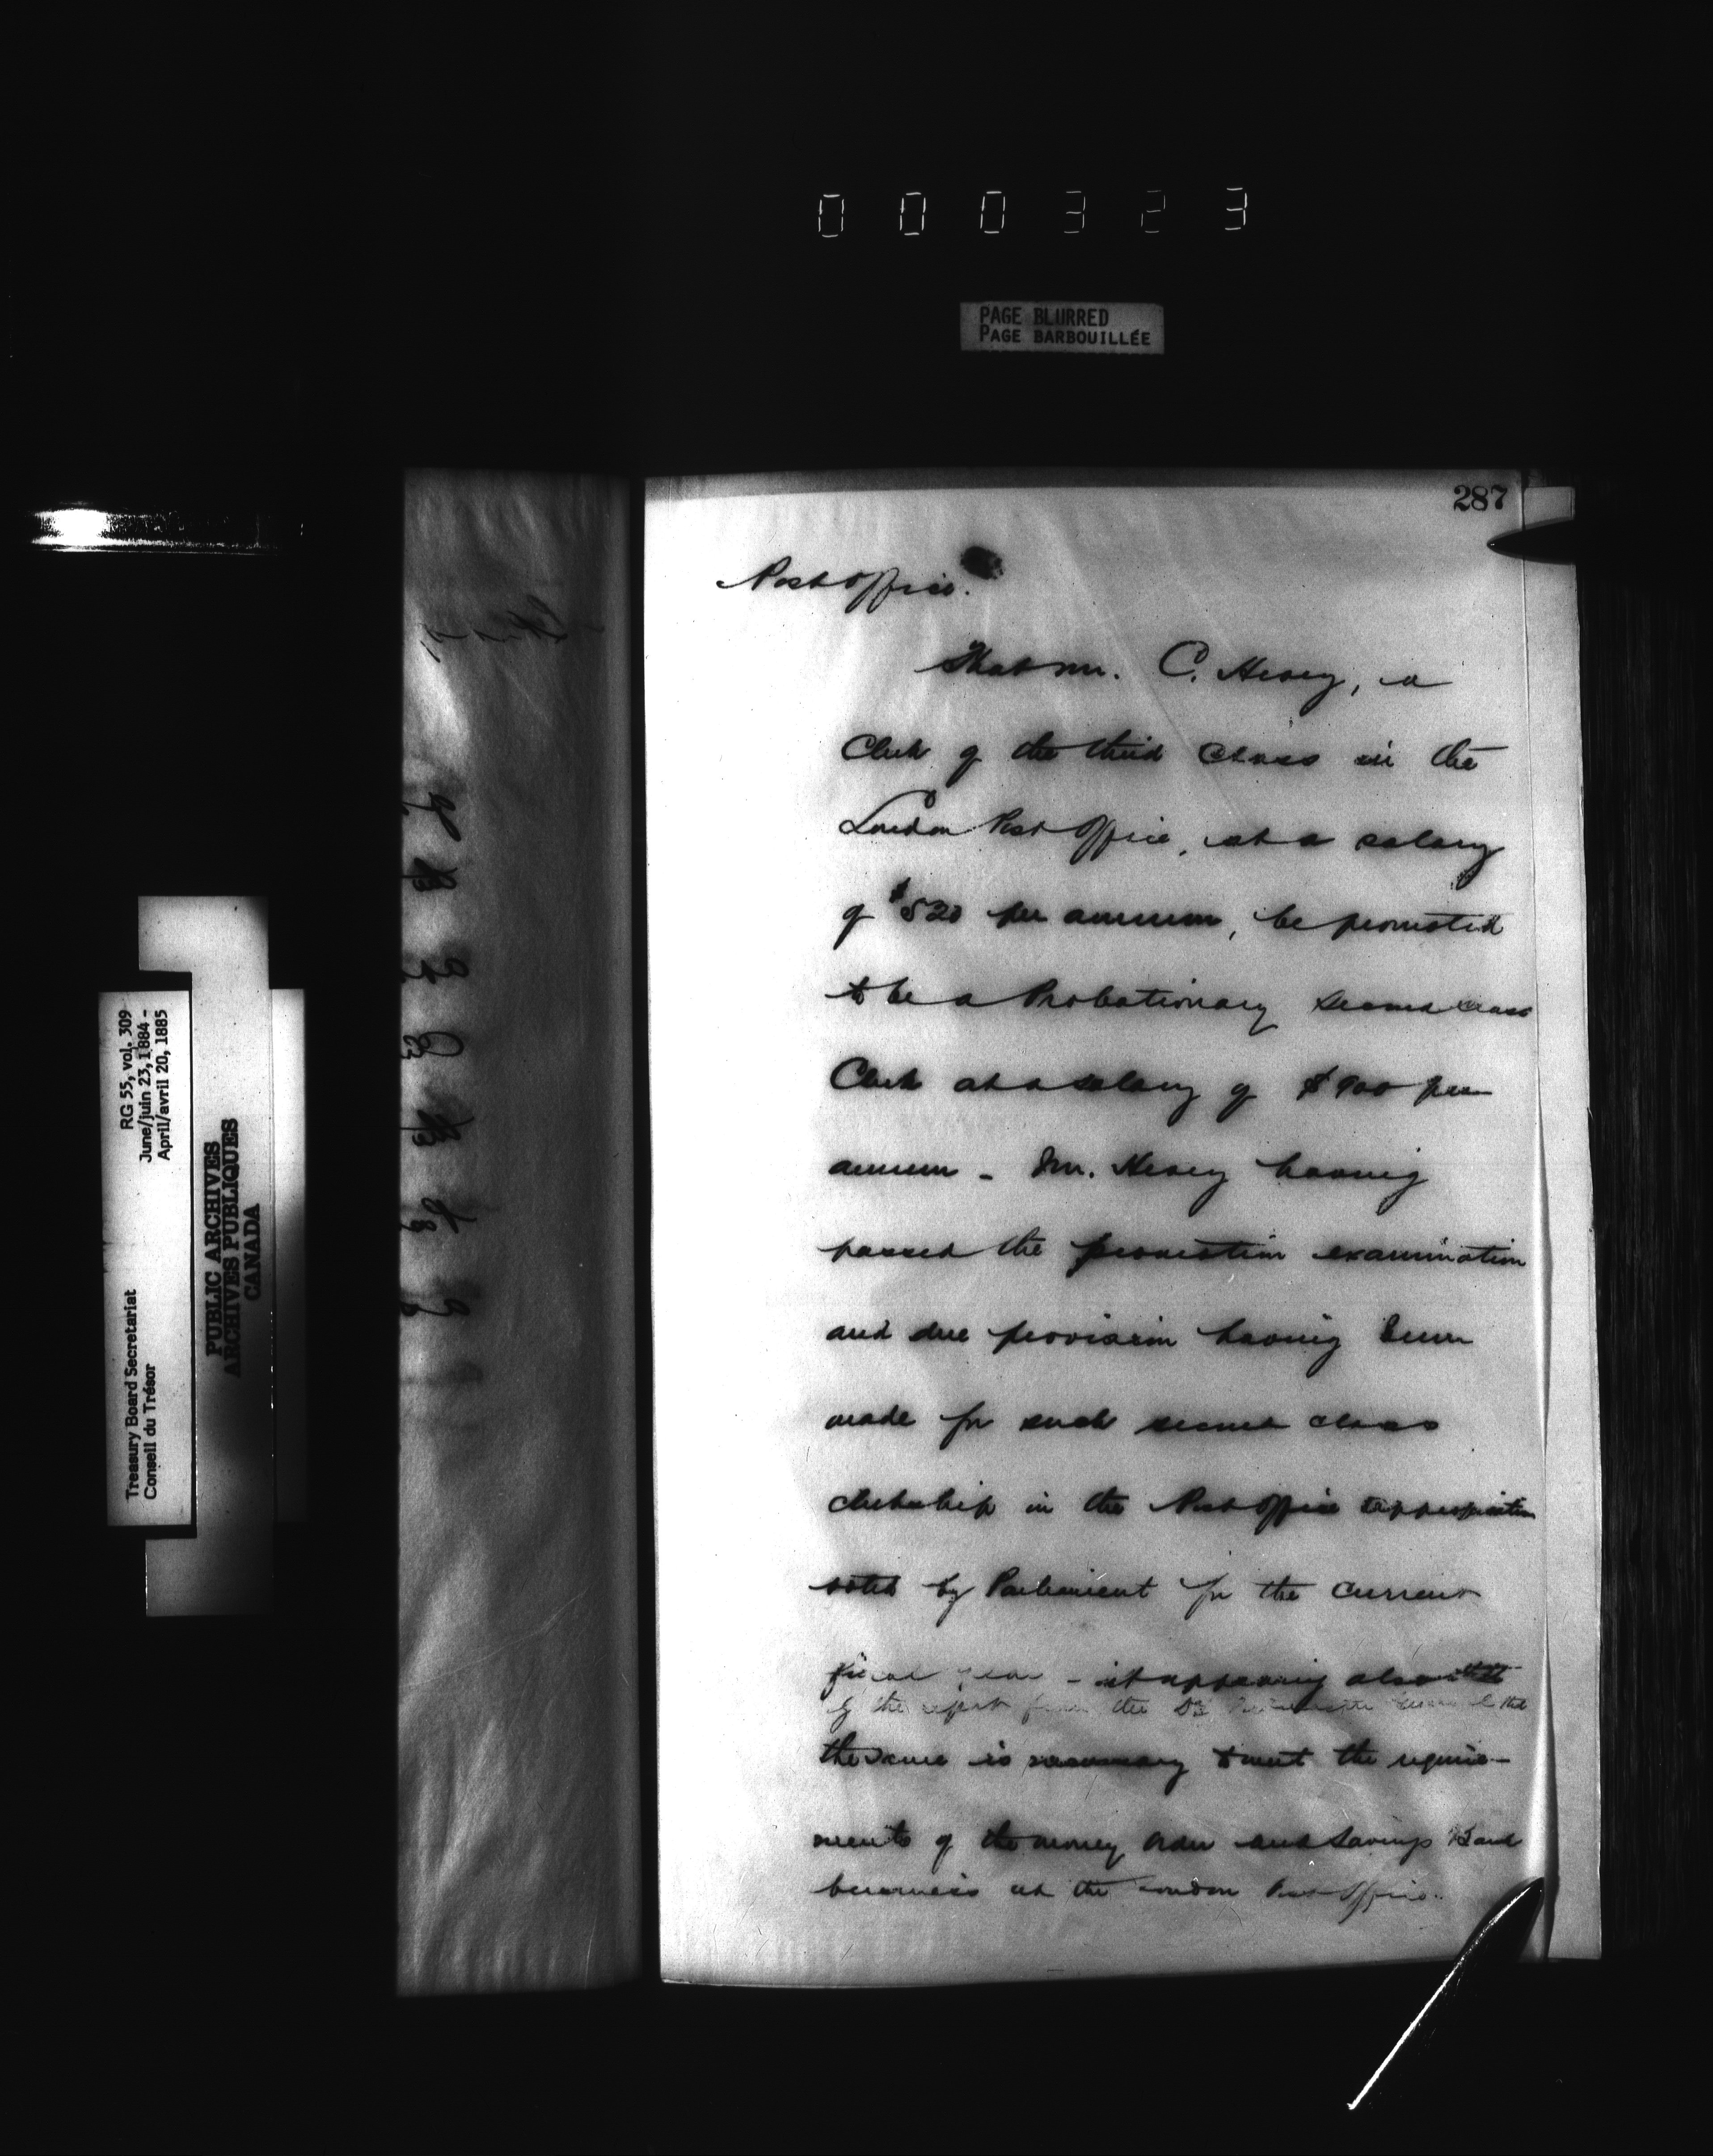 000323
PAGE BLURRED
PAGE BARBOUILLÉE
287
Post Office.
That Mr. C. Hevey, a
Clerk of the third Class in the
London Post Office, at a salary
of $520 per annum, be promoted
to be a Probationary second class
Clerk at a salary of $900 per
annum - Mr. Hevey having
passed the promotion examination
and due provision having been
made for such second class
clerkship in the Post Office appropriation
voted by Parliament for the current
fiscal year - it appearing also
by the report from the
the same is necessary to meet the require-
ments of the money order and Savings Bank
business at the London Post Office.
RG 55, vol. 309
June/juin 23, 1884 -
April/avril 20, 1885
Treasury Board Secretariat
Conseil du Trésor
PUBLIC ARCHIVES
ARCHIVES PUBLIQUES
CANADA